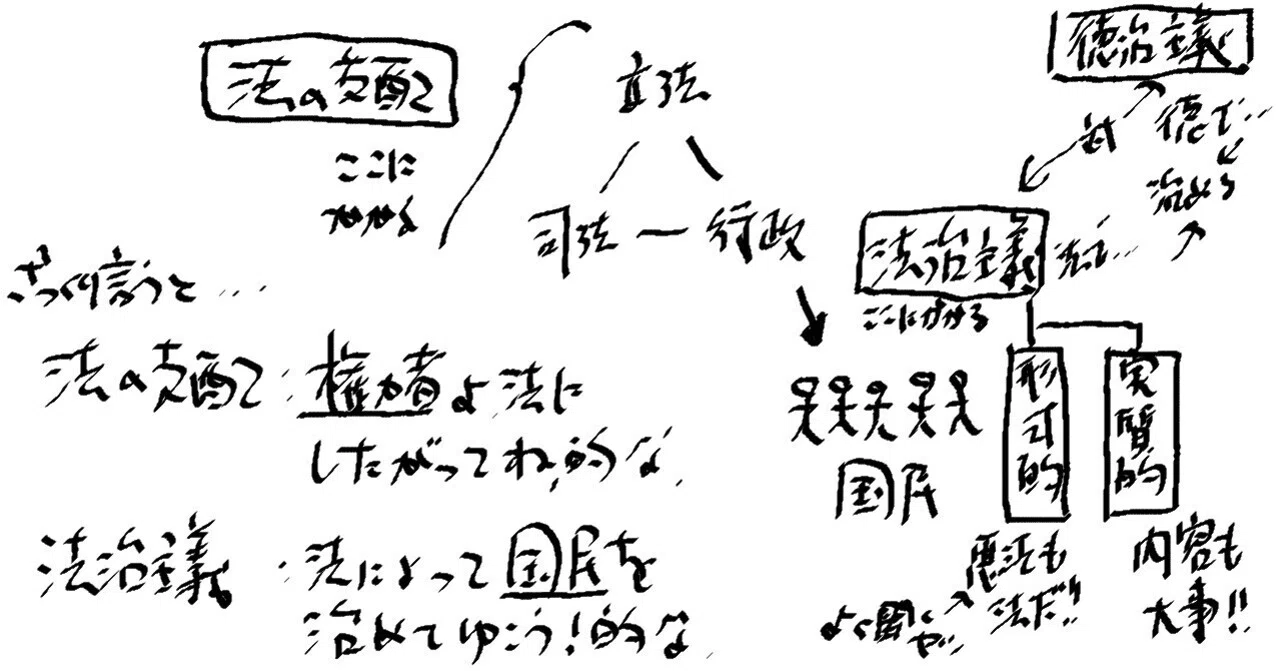 法の支配
ここに
かかる
立法
司法 ー 行政
徳治主義
対
徳で…
治める
法治主義
法で…
ここにかかる
形式的
実質的
国民
悪法も
法だ!!
よく聞くやつ
内容も
大事!!
ざっくり言うと…
法の支配：権力者よ法に
したがってね,的な
法治主義：法によって国民を
治めてゆこう!的な